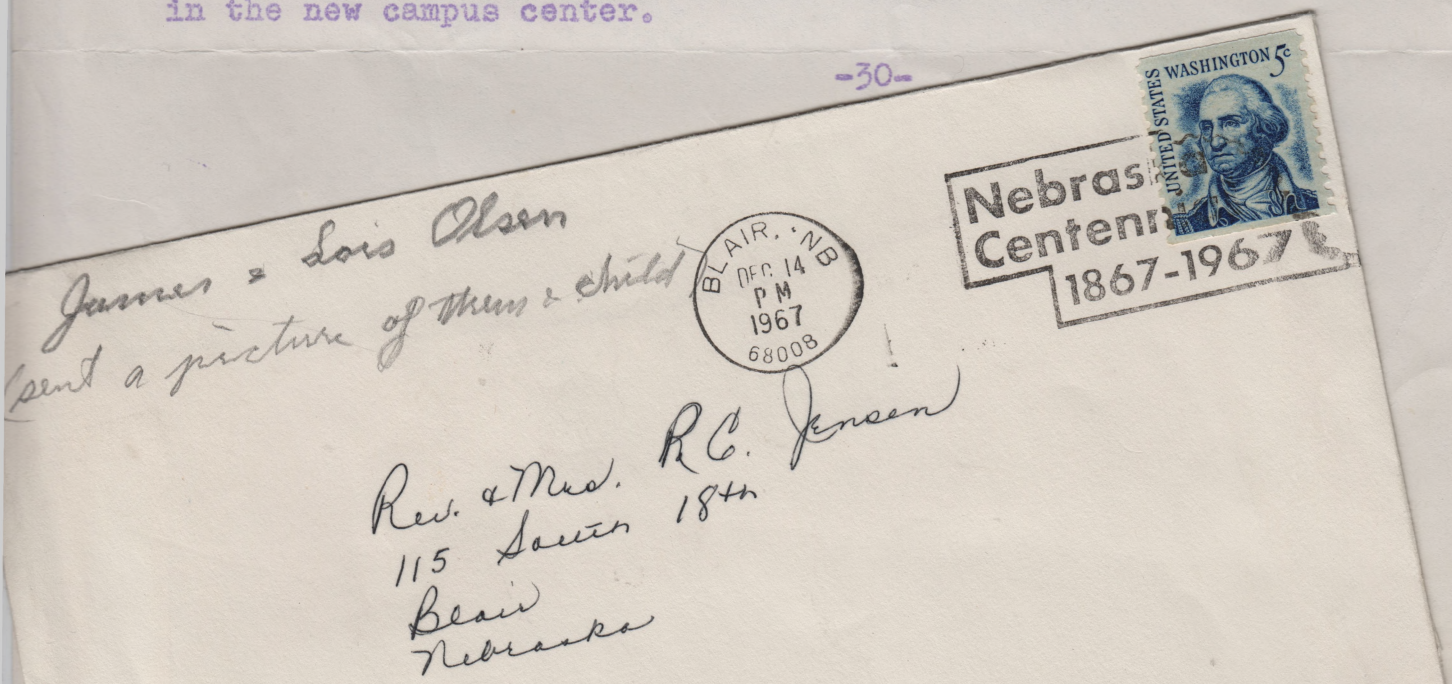 in the new campus center.
-30-
UNITED STATES
WASHINGTON 5c
Nebras
Centenn
1867-1967
BLAIR, NB
DEC 14
PM
1967
68008
James & Lois Olsen
(sent a picture of them & child)
Rev. & Mrs. R.C. Jensen
115 South 18th
Blair
Nebraska